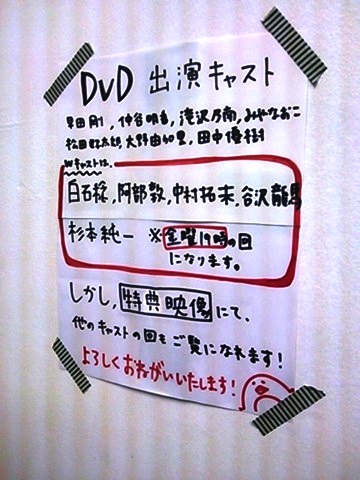 DVD 出演キャスト
早田剛, 仲谷明香, 滝沢乃南, みやなおこ
松田好太郎, 大野由加里, 田中優樹
Wキャストは、
白石稔, 阿部敦, 中村拓未, 谷沢龍馬
杉本純一 ※金曜19時の回
になります。
しかし, 特典映像にて、
他のキャストの回もご覧になれます!
よろしくおねがいいたします!